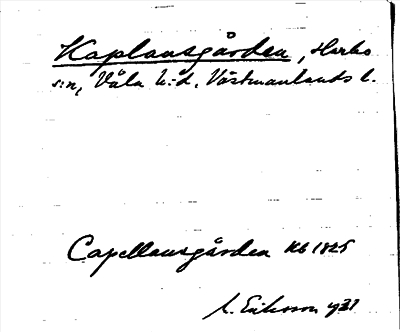 Kaplansgården, Harbo
s:n, Våla h:d, Västmanlands l.
Capellansgården Kb 1825
Eriksson 1931